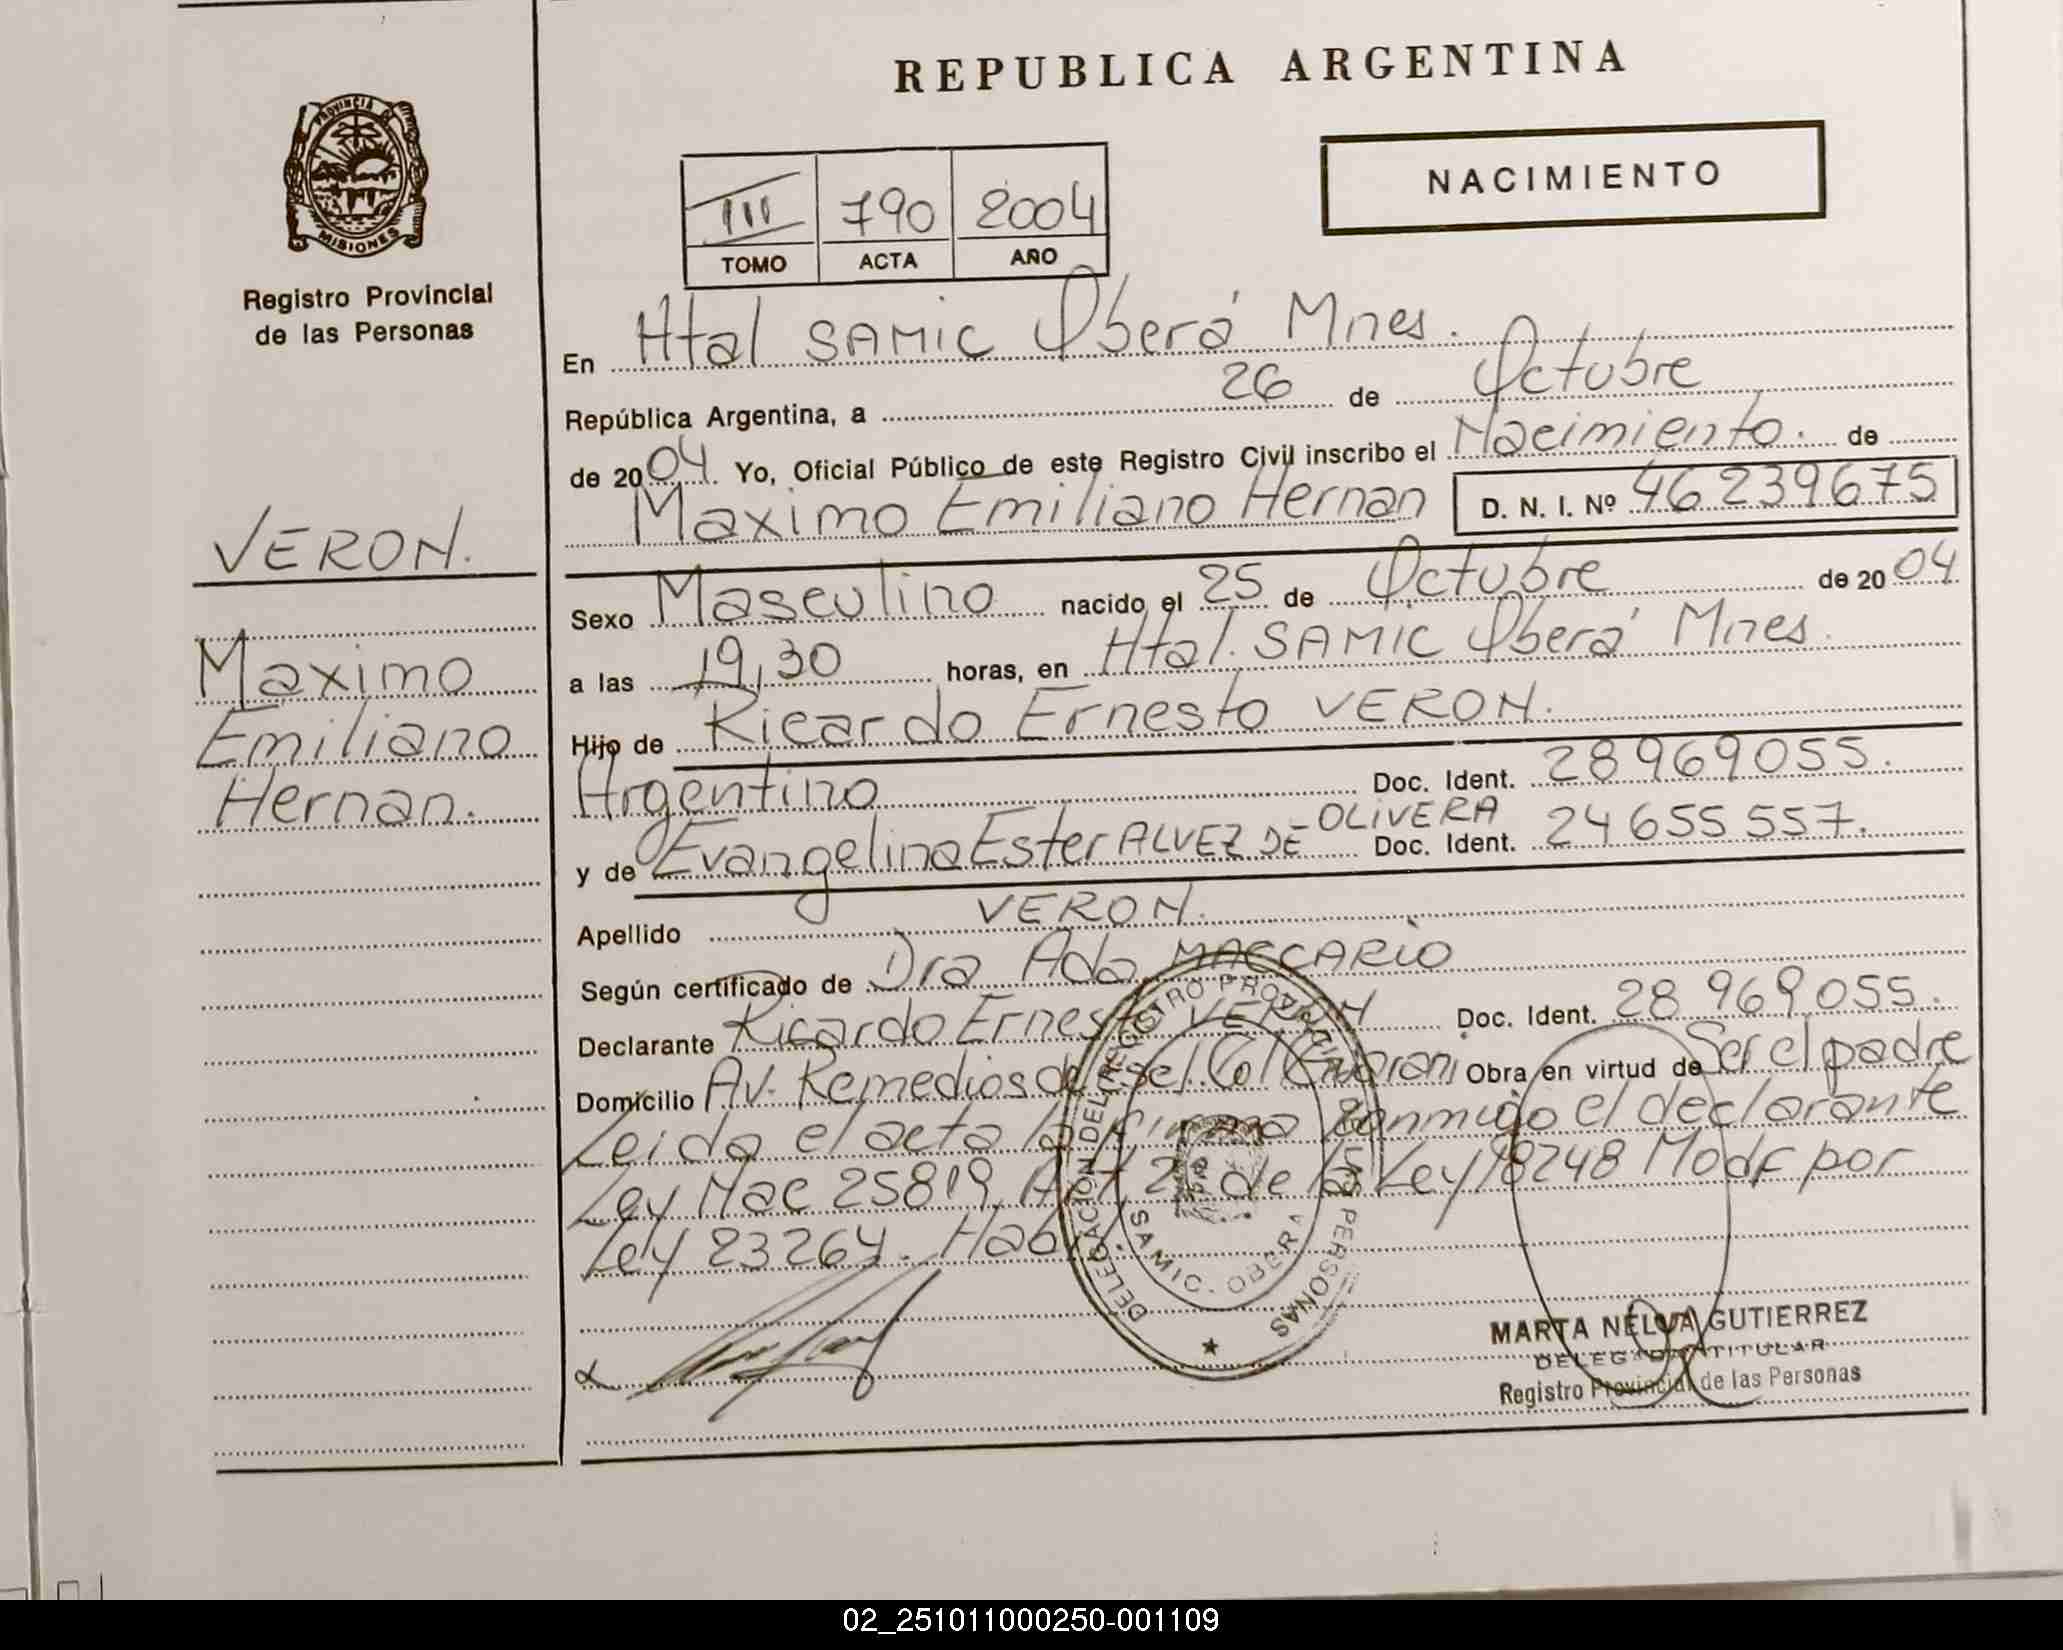 REPUBLICA ARGENTINA
PROVINCIA DE
MISIONES
Registro Provincial
de las Personas
NACIMIENTO
III 790 2004
TOMO ACTA AÑO
En Htal SAMIC Oberá Mnes.
República Argentina, a 26 de Octubre
de 2004 Yo, Oficial Público de este Registro Civil inscribo el Nacimiento. de
Maximo Emiliano Hernan D. N. I. Nº 46239675
VERON.
Maximo
Emiliano
Hernan.
Sexo Masculino nacido el 25 de Octubre de 2004
a las 19,30 horas, en Htal. SAMIC Oberá Mnes.
Hijo de Ricardo Ernesto VERON.
Argentino Doc. Ident. 28969055.
y de Evangelina Ester ALVEZ DE OLIVERA Doc. Ident. 24655557.
Apellido VERON.
Según certificado de Dra Ada MACCARIO
Declarante Ricardo Ernesto VERON Doc. Ident. 28969055.
Domicilio Av. Remedios de Col Guarani Obra en virtud de Ser el padre
Leida el acta la firma conmigo el declarante
Ley Nac 25819, Art 2 de la Ley 18248 Modf por
Ley 23264.
DELEGACION DEL REGISTRO PROVINCIAL DE LAS PERSONAS
SAMIC - OBERA
MARTA NELVA GUTIERREZ
DELEGADA TITULAR
Registro Provincial de las Personas
02_251011000250-001109